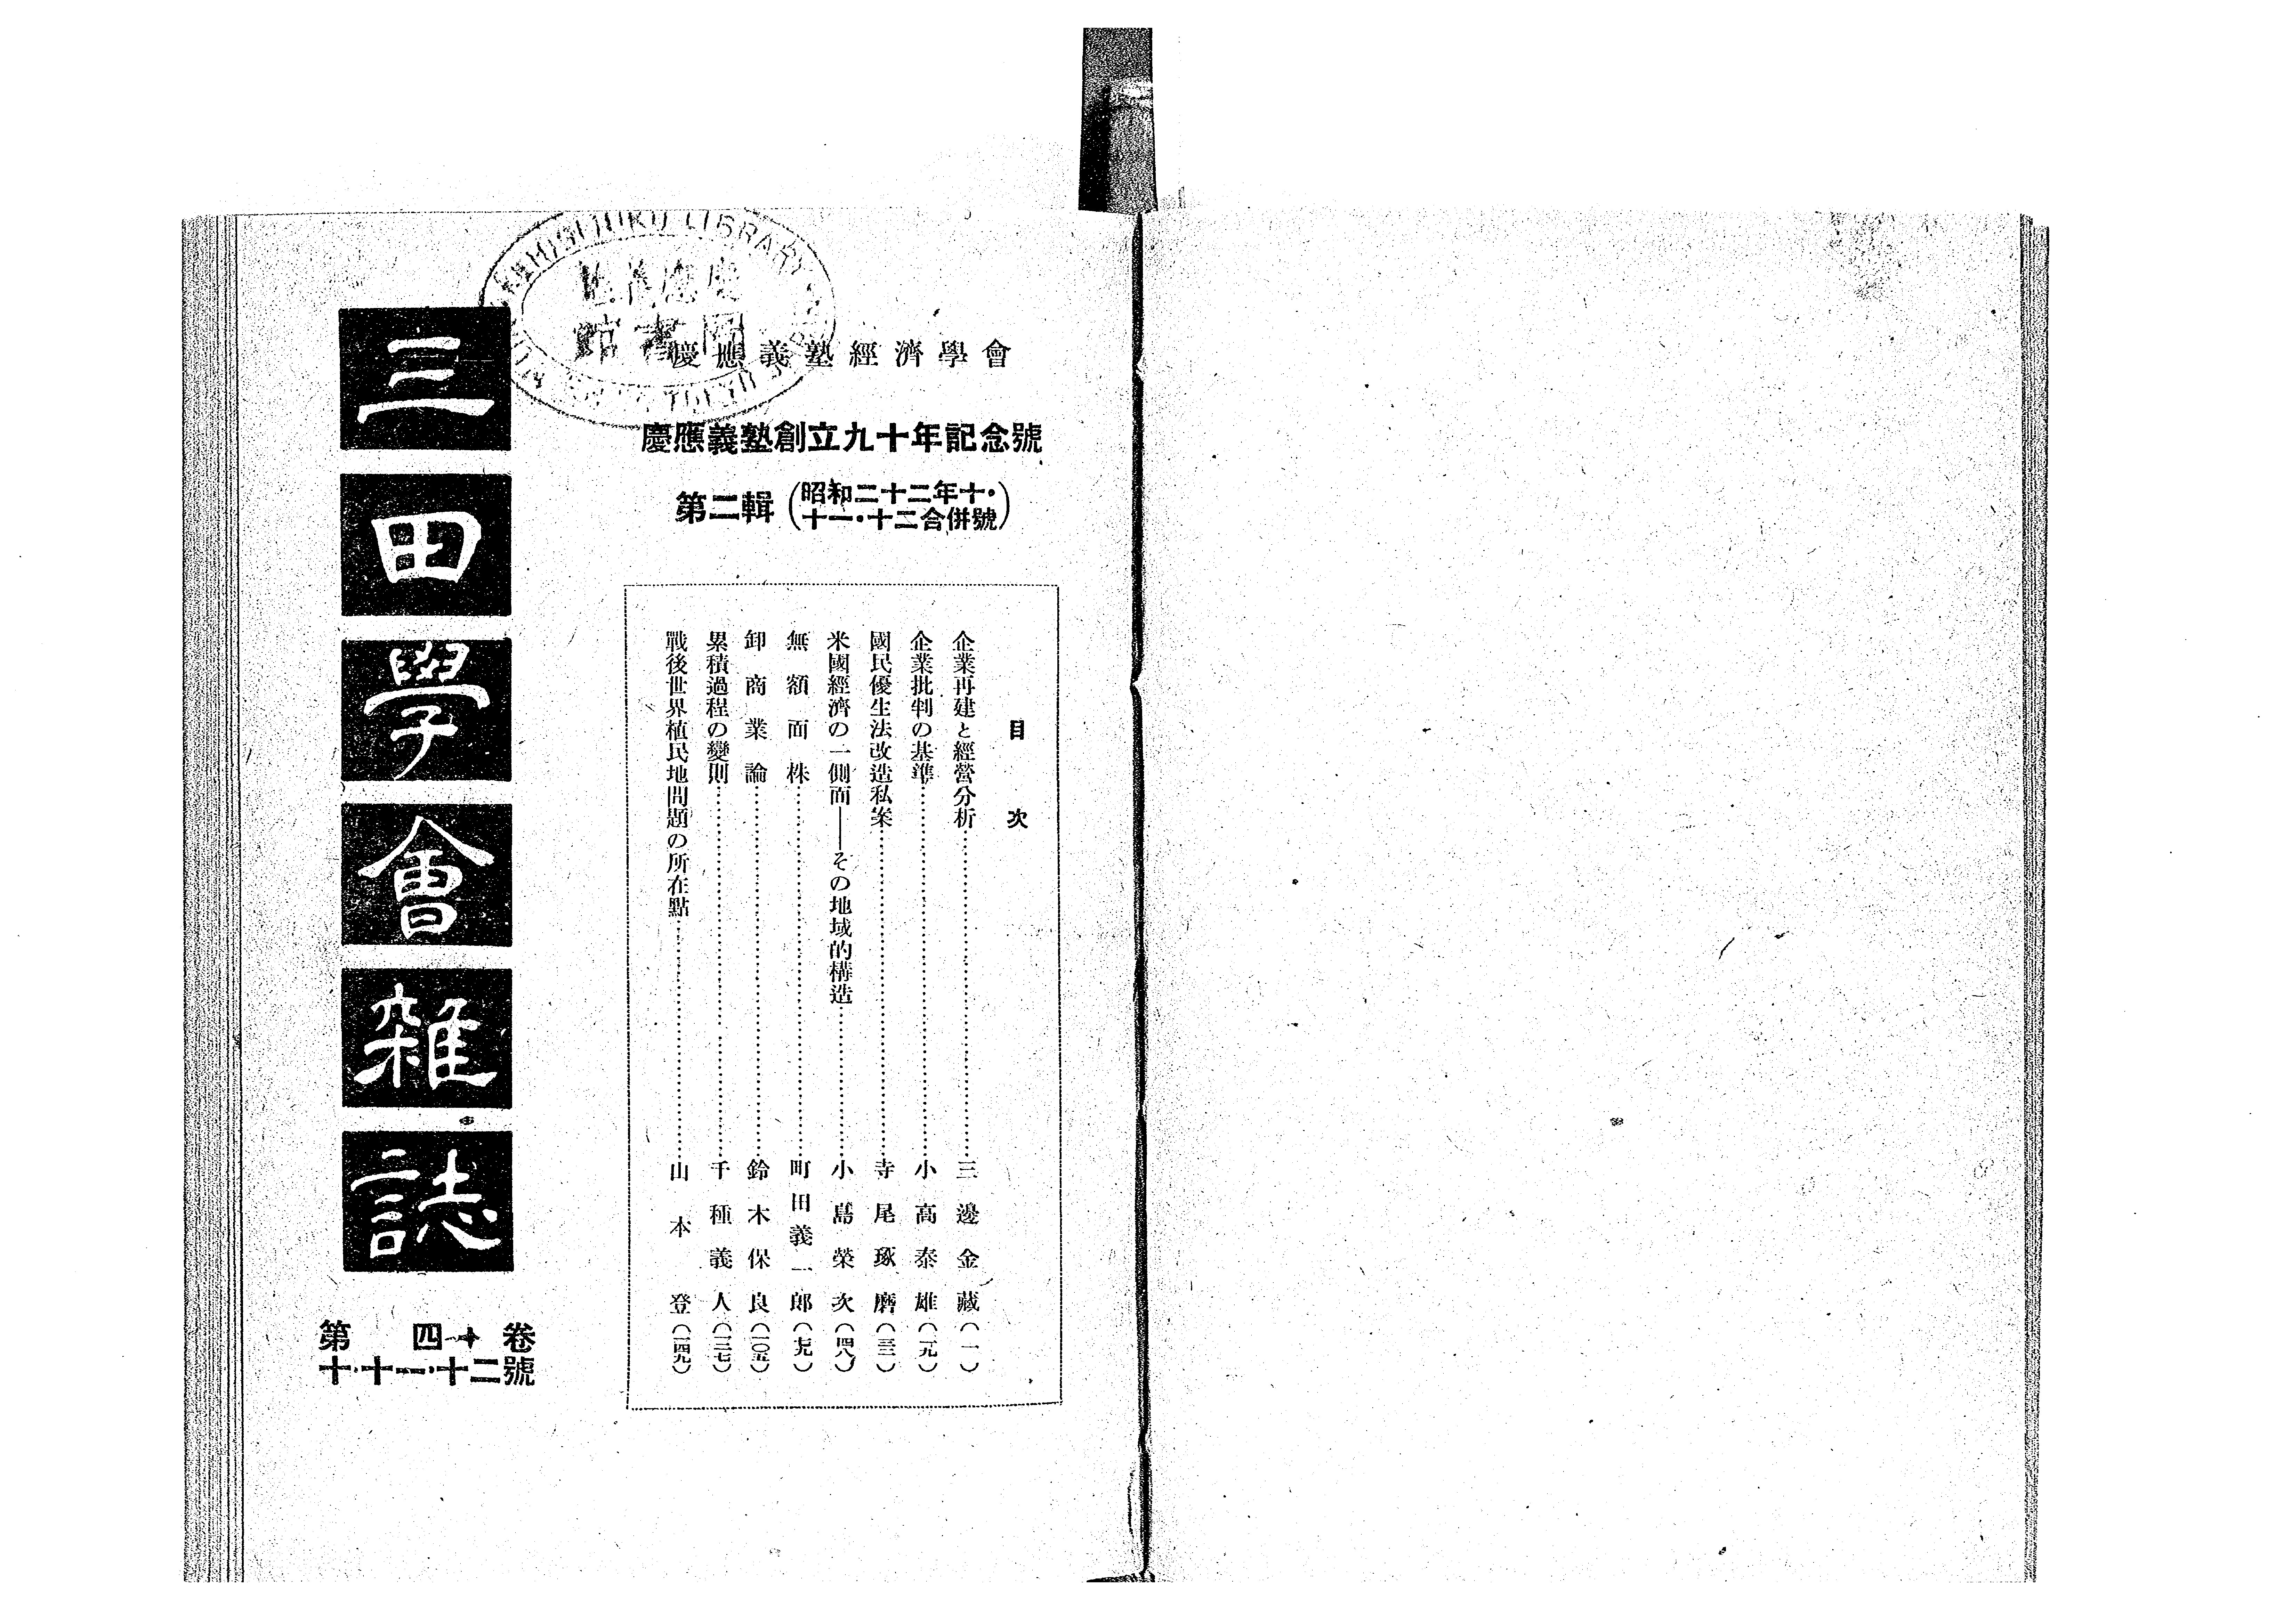 慶應義塾經濟學會
慶應義塾創立九十年記念號
第二輯（昭和二十二年十・
十一・十二合併號）
目次
企業再建と經營分析……三邊金藏（一）
企業批判の基準……小高泰雄（一九）
國民優生法改造私案……寺尾琢磨（三三）
米國經濟の一側面――その地域的構造……小島榮次（四八）
無額面株……町田義一郎（七九）
卸商業論……鈴木保良（一〇五）
累積過程の變則……千種義人（一二七）
戰後世界植民地問題の所在點……山本登（一四九）
三田學會雜誌
第四十卷
十・十一・十二號
LIBRARY
圖書館